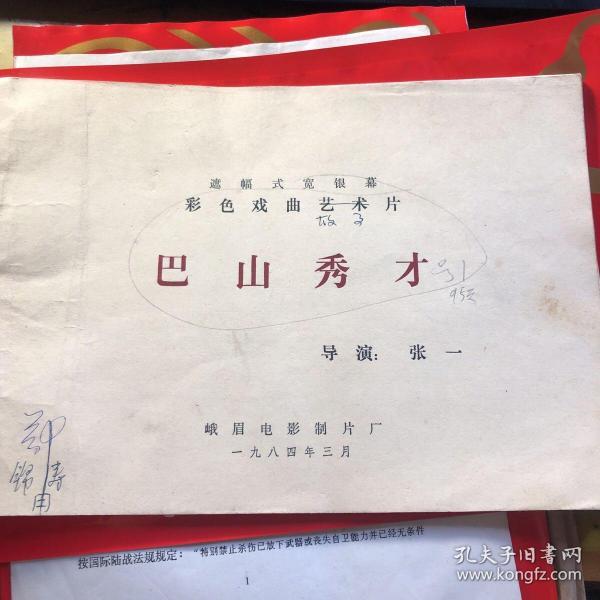 遮幅式宽银幕
彩色戏曲艺术片
故事
巴山秀才
导演：张一
峨眉电影制片厂
一九八四年三月
郑
锦涛
用
按国际陆战法规规定：“特别禁止杀伤已放下武器或丧失自卫能力并已经无条件
1
孔夫子旧书网
www.kongfz.com